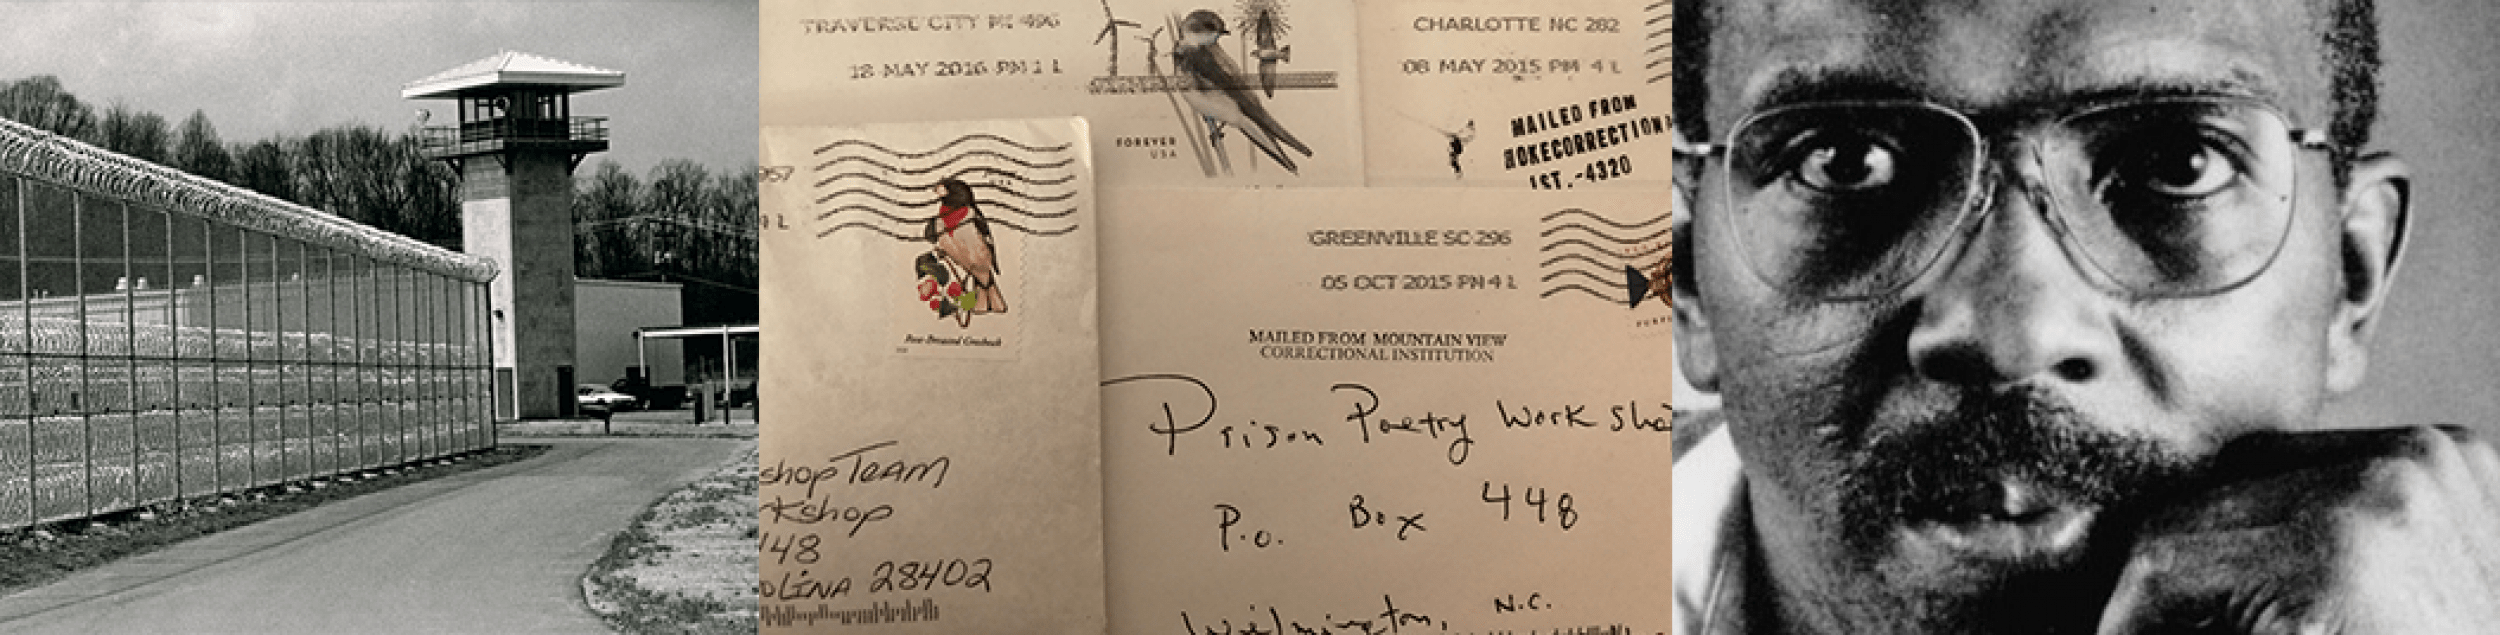 TRAVERSE CITY MI 496
18 MAY 2016 PM 1 L
FOREVER
USA
CHARLOTTE NC 282
08 MAY 2015 PM 4 L
MAILED FROM
HOKECORRECTION
IST.-4320
4 L
Rose-Breasted Grosbeak
shop TEAM
rkshop
448
OLINA 28402
GREENVILLE SC 296
05 OCT 2015 PM 4 L
MAILED FROM MOUNTAIN VIEW
CORRECTIONAL INSTITUTION
Prison Poetry Work Sho
P.O. Box 448
Wilmington, N.C.